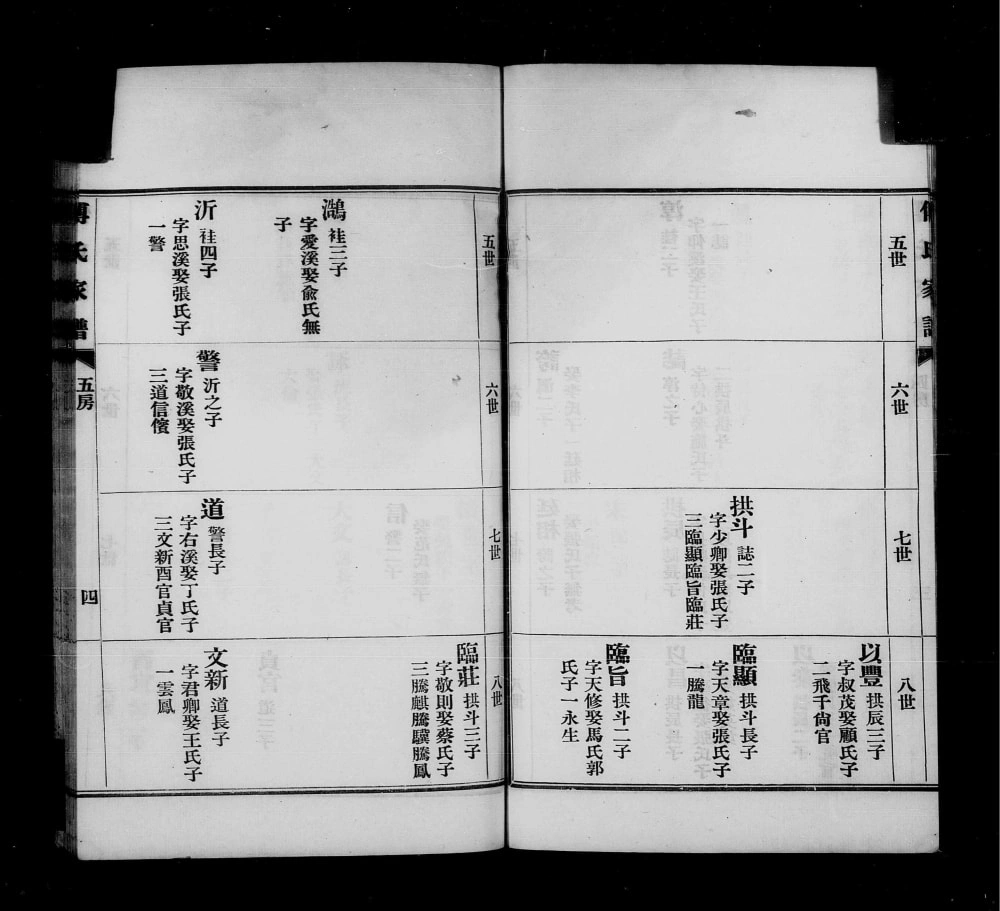 五世
六世
七世
拱斗 誌二子
字少卿娶張氏子
三臨顯臨旨臨莊
八世
以豐 拱辰三子
字叔茂娶顧氏子
二飛千尙官
臨顯 拱斗長子
字天章娶張氏子
一騰龍
臨旨 拱斗二子
字天修娶馬氏郭
氏子一永生
五世
鵨 袿三子
字愛溪娶兪氏無
子
沂 袿四子
字思溪娶張氏子
一警
六世
警 沂之子
字敬溪娶張氏子
三道信儐
七世
道 警長子
字右溪娶丁氏子
三文新酉官貞官
八世
臨莊 拱斗三子
字敬則娶蔡氏子
三騰麒騰驥騰鳳
文新 道長子
字君卿娶王氏子
一雲鳳
傅氏家譜
五房
四